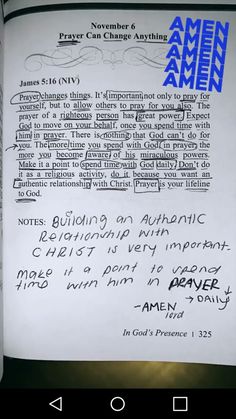 AMEN
AMEN
AMEN
AMEN
AMEN
November 6
Prayer Can Change Anything
James 5:16 (NIV)
Prayer changes things. It's important not only to pray for
yourself, but to allow others to pray for you also. The
prayer of a righteous person has great power. Expect
God to move on your behalf, once you spend time with
him in prayer. There is nothing that God can't do for
you. The more time you spend with God in prayer, the
more you become aware of his miraculous powers.
Make it a point to spend time with God daily. Don't do
it as a religious activity, do it because you want an
authentic relationship with Christ. Prayer is your lifeline
to God.
NOTES: Building an Authentic
Relationship with
CHRIST is very important.
make it a point to spend
time with him in PRAYER
→ DAILY
-AMEN
lord
In God's Presence | 325